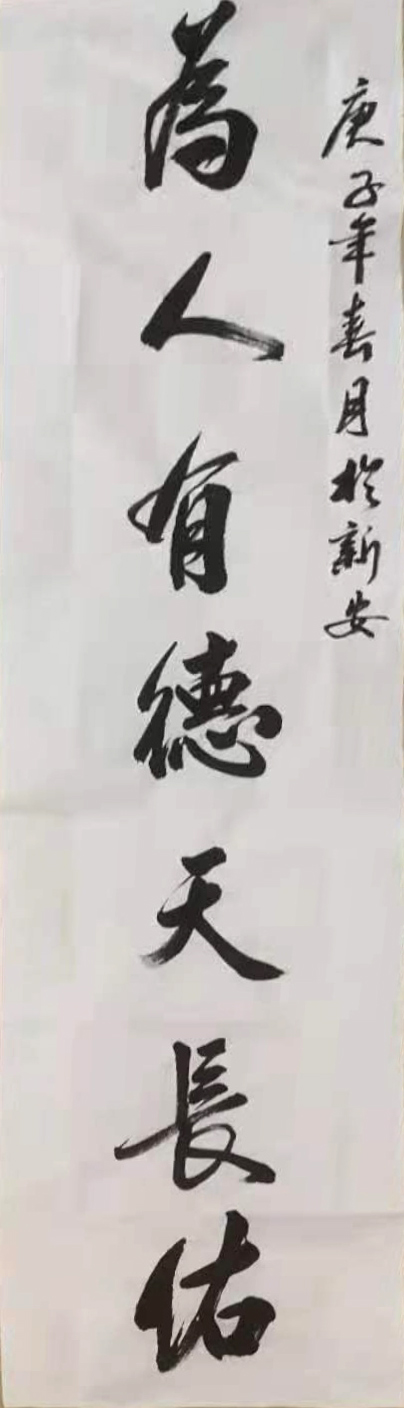 庚子年春月於新安
為人有德天長佑